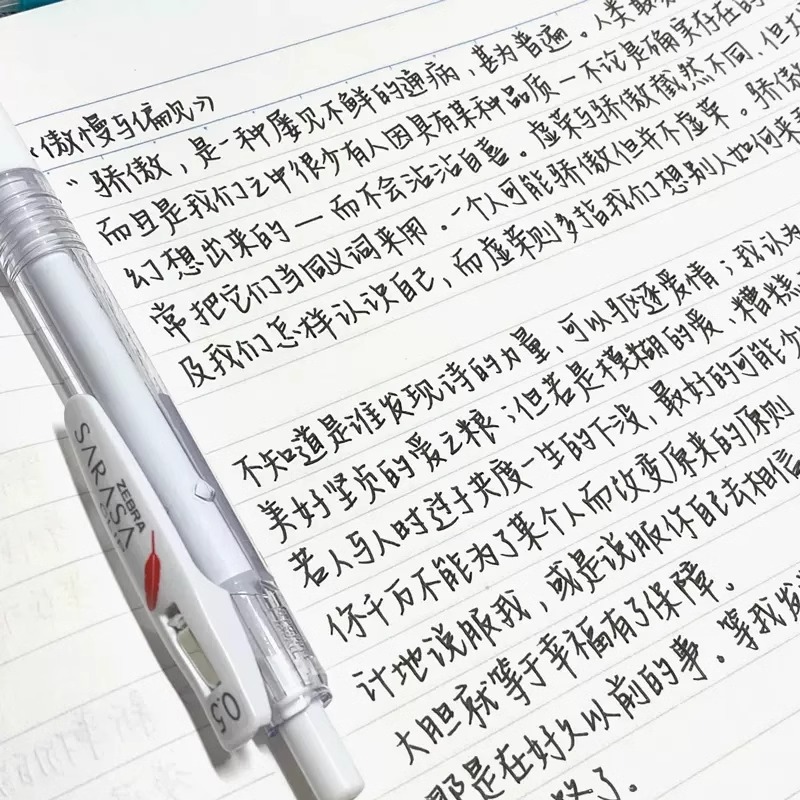 《傲慢与偏见》
“骄傲，是一种屡见不鲜的通病，甚为普遍。人类
而且是我们之中很少有人因具有某种品质—不论是确实存在的
幻想出来的—而不会沾沾自喜。虚荣与骄傲截然不同，但
常把它们当同义词来用。一个人可能骄傲但并不虚荣。骄傲
及我们怎样认识自己，而虚荣则多指我们想别人如何来
不知道是谁发现诗的力量，可以驱逐爱情；我认为
美好坚贞的爱之粮；但若是模糊的爱，糟糕
若人与人时过于共度一生的下没，最好的可能
你千万不能为了某个人而改变原来的原则
计地说服我，或是说服你自己去相信
大胆就等于幸福有了保障。
那是在好久以前的事。等我发
了。
ZEBRA
SARASA
0.5